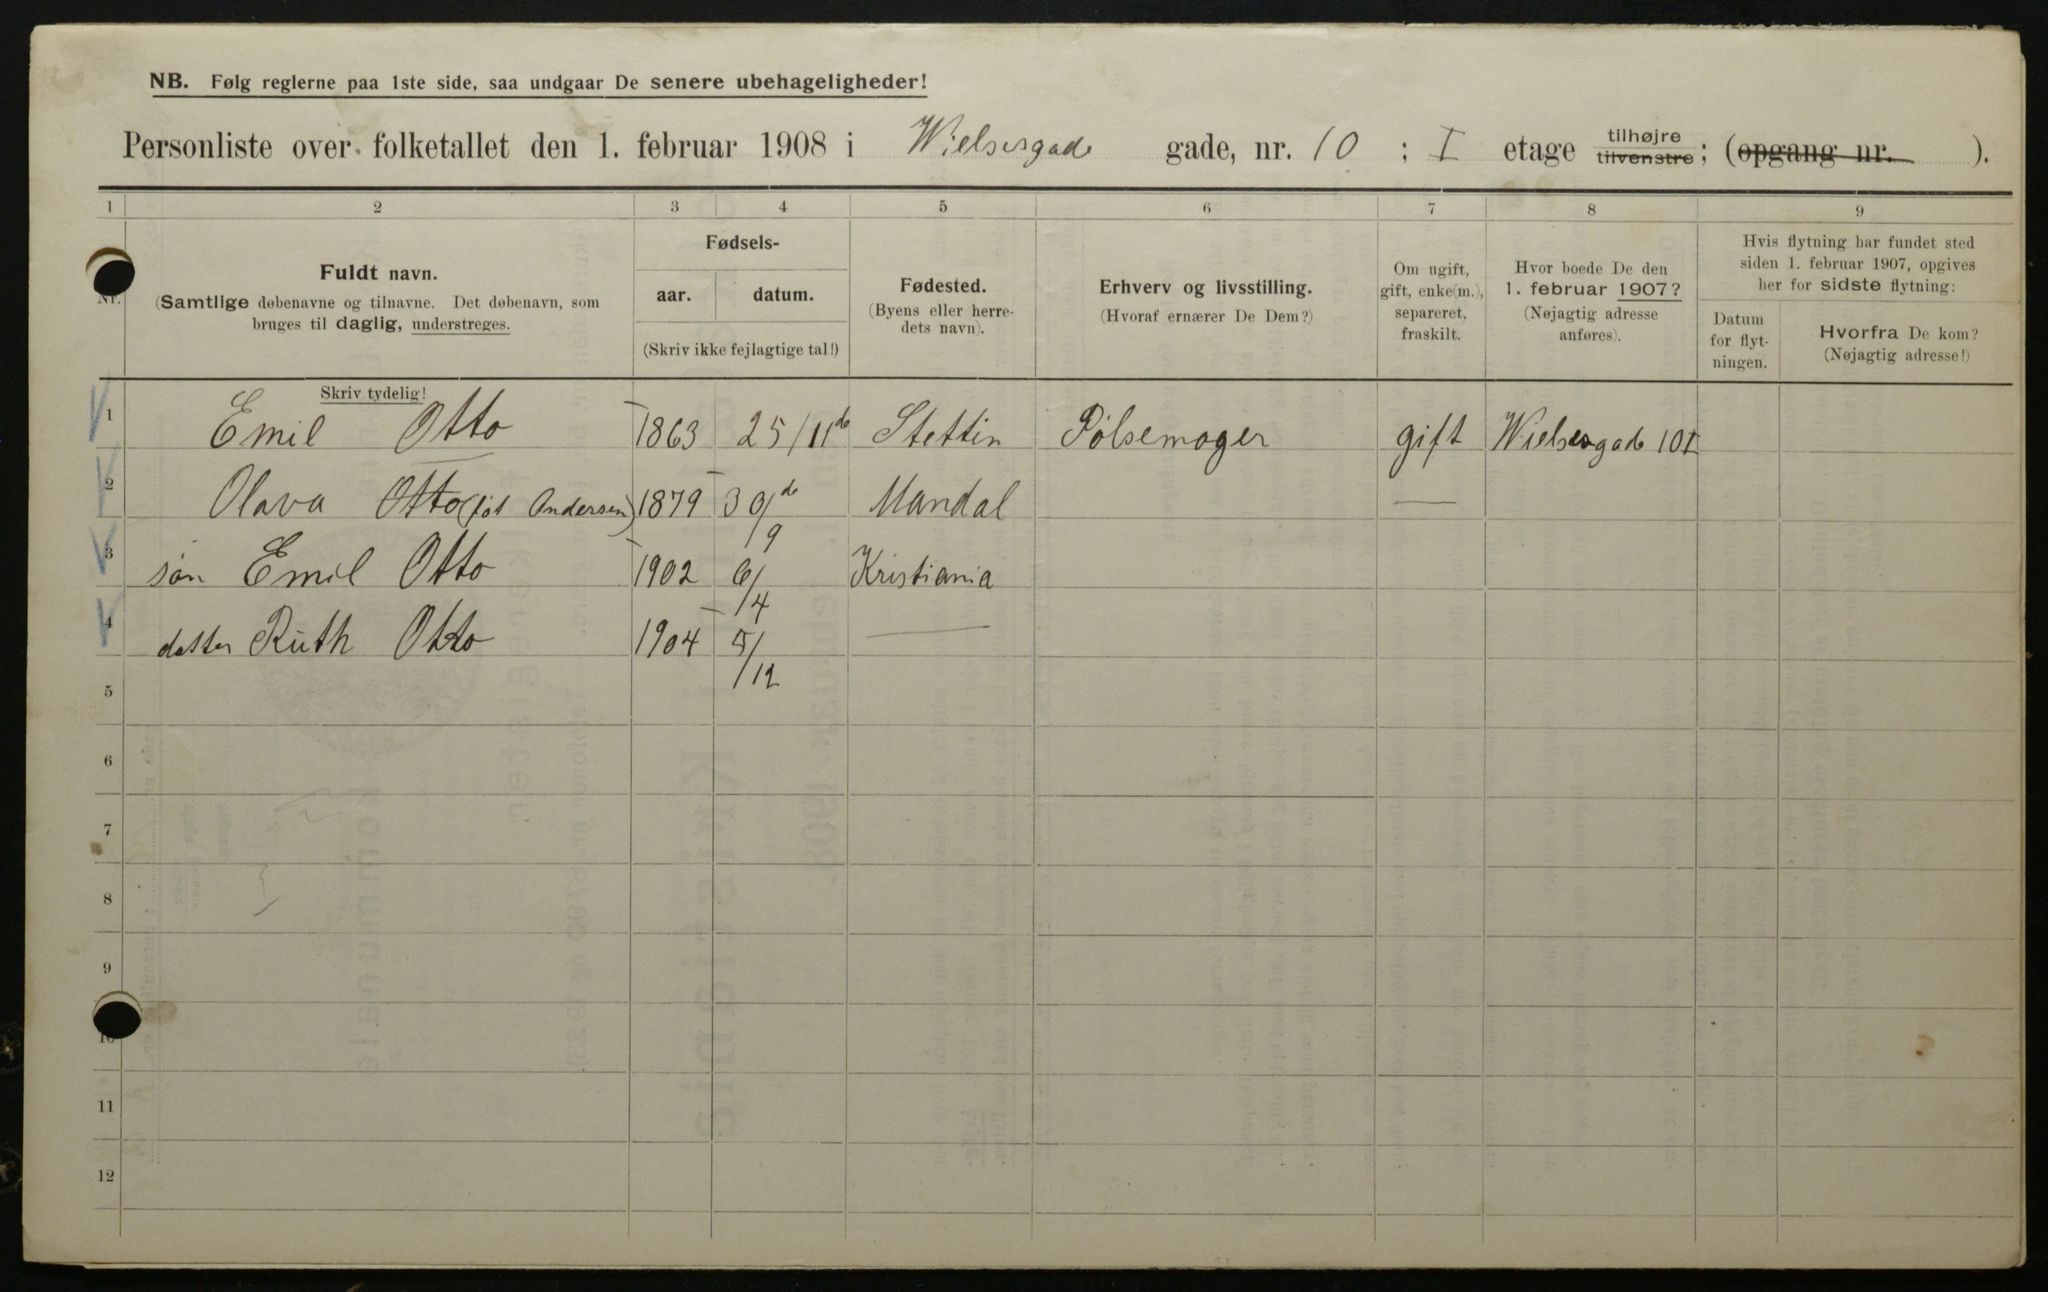 NB. Følg reglerne paa 1ste side, saa undgaar De senere ubehageligheder!
Personliste over folketallet den 1. februar 1908 i Wielsesgade gade, nr. 10 ; I etage tilhøjre tilvenstre; (opgang nr. ).
1 2 3 4 5 6 7 8 9
Nr.
Fuldt navn.
(Samtlige døbenavne og tilnavne. Det døbenavn, som
bruges til daglig, understreges.
Skriv tydelig!
Fødsels-
aar. datum.
(Skriv ikke fejlagtige tal!)
Fødested.
(Byens eller herre-
dets navn).
Erhverv og livsstilling.
(Hvoraf ernærer De Dem?)
Om ugift,
gift, enke(m.),
separeret,
fraskilt.
Hvor boede De den
1. februar 1907?
(Nøjagtig adresse
anføres).
Hvis flytning har fundet sted
siden 1. februar 1907, opgives
her for sidste flytning:
Datum
for flyt-
ningen.
Hvorfra De kom?
(Nøjagtig adresse!)
1 Emil Otto 1863 25/11de Stettin Pölsemager gift Wielsesgade 10 I
2 Olava Otto (föt Andersen) 1879 30de/9 Mandal —
3 sön Emil Otto 1902 6/4 Kristiania
4 datter Ruth Otto 1904 5/12 —
5
6
7
8
9
10
11
12